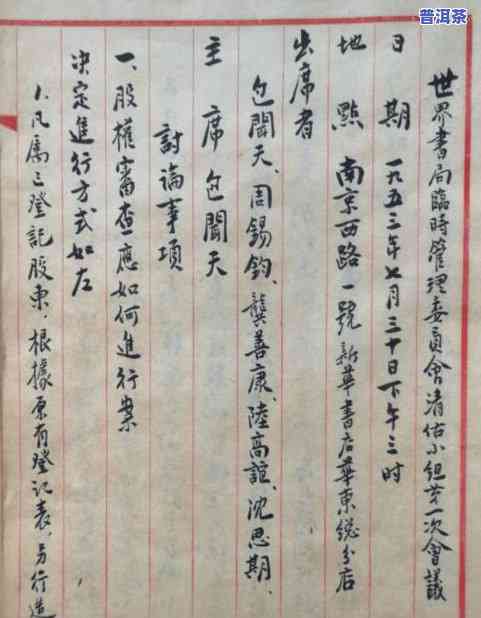 普洱茶
世界書局臨時管理委員會清估小組第一次會議
日期 一九五三年七月三十日下午三时
地點 南京西路一號新華書店華東總分店
出席者
包聞天、周錫鈞、龔善康、陸高誼、沈思期、
主席 包聞天
討論事項
一、股權審查應如何進行案
決定進行方式如左
1. 凡屬已登記股東，根據原有登记表，另行造